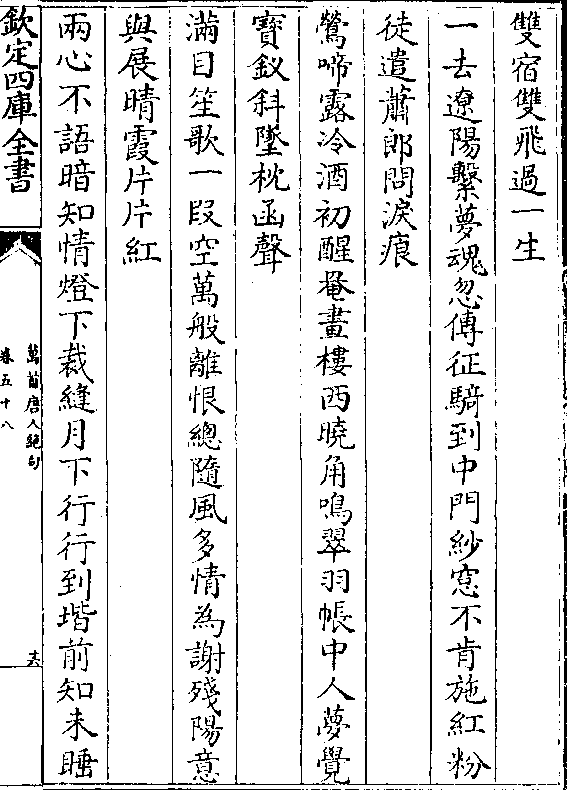 雙宿雙飛過一生
一去遼陽繫夢魂忽傳征騎到中門紗窓不肯施紅粉
徒遣蕭郎問淚痕
鶯啼露冷酒初醒罨畫樓西曉角鳴翠羽帳中人夢覺
寳釵斜墜枕函聲
滿目笙歌一段空萬般離恨總隨風多情為謝殘陽意
與展晴霞片片紅
兩心不語暗知情燈下裁縫月下行行到堦前知未睡
欽定四庫全書
萬首唐人絶句
卷五十八